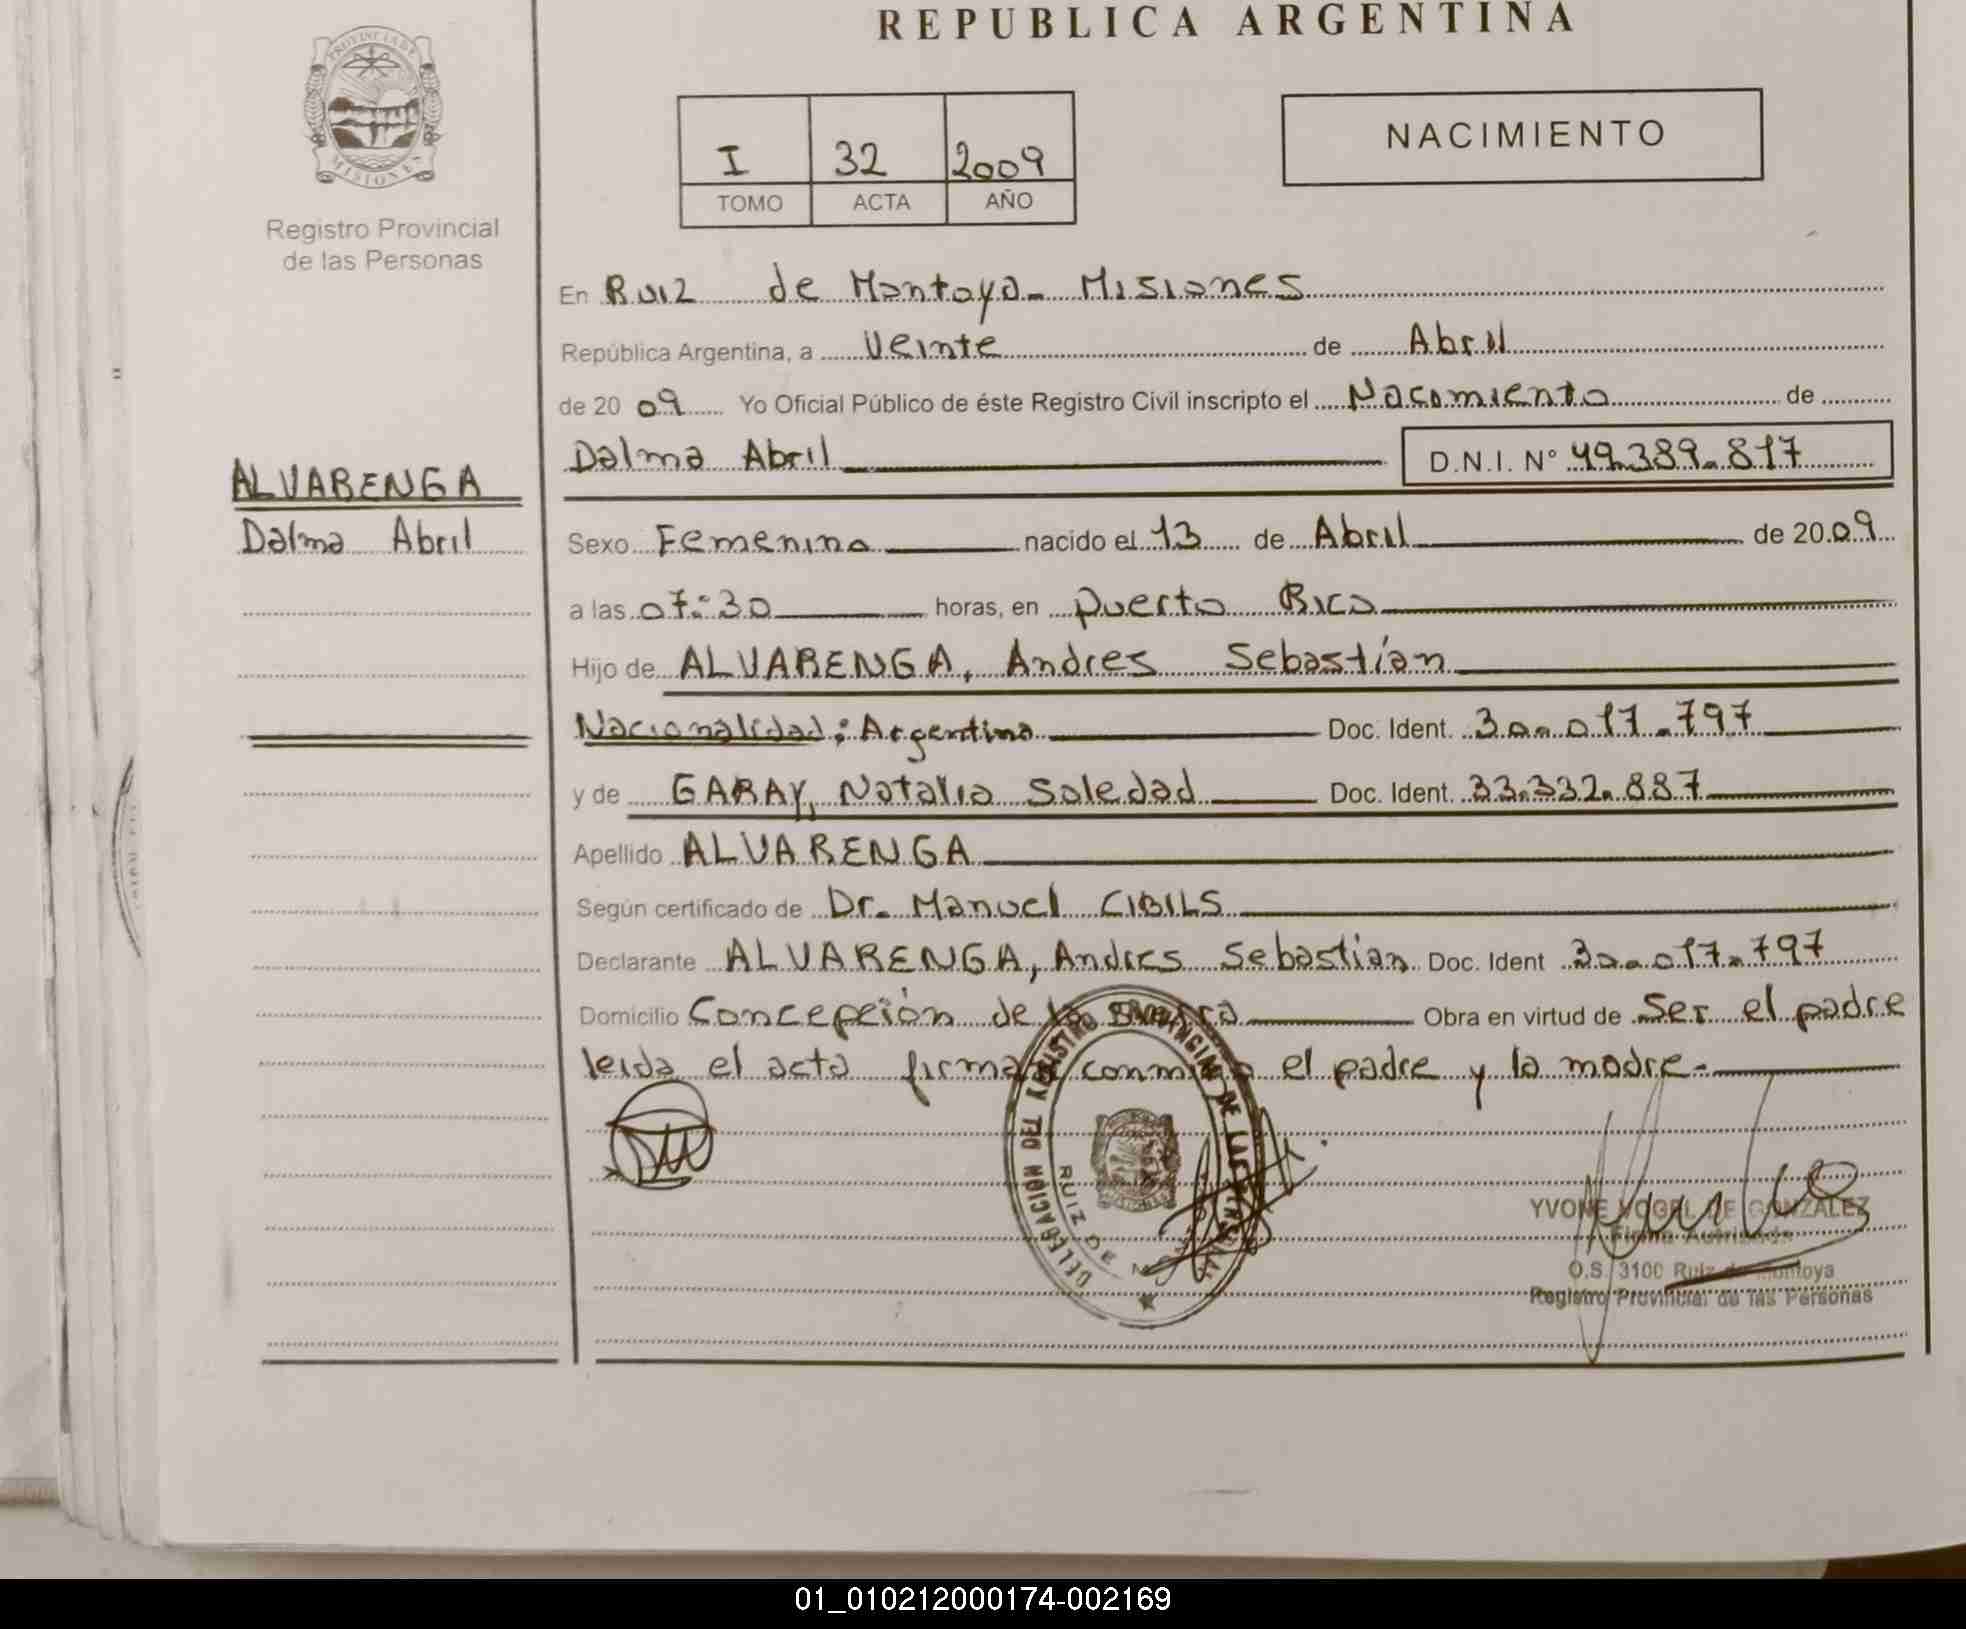 REPUBLICA ARGENTINA
PROVINCIA DE
MISIONES
Registro Provincial
de las Personas
I 32 2009
TOMO ACTA AÑO
NACIMIENTO
En Ruiz de Montoya - Misiones
República Argentina, a Veinte de Abril
de 20 09 Yo Oficial Público de éste Registro Civil inscripto el Nacimiento de
Dalma Abril D.N.I. Nº 49.389.817
ALVARENGA
Dalma Abril
Sexo Femenino nacido el 13 de Abril de 20 09
a las 07:30 horas, en Puerto Rico
Hijo de ALVARENGA, Andres Sebastían
Nacionalidad: Argentina Doc. Ident. 30.017.797
y de GARAY, Natalia Soledad Doc. Ident. 33.332.887
Apellido ALVARENGA
Según certificado de Dr. Manuel CIBILS
Declarante ALVARENGA, Andres Sebastian Doc. Ident 30.017.797
Domicilio Concepción de la Sierra Obra en virtud de Ser el padre
leida el acta firman conmigo el padre y la madre.-
DELEGACION DEL REGISTRO PROVINCIAL DE LAS PERSONAS
RUIZ DE MONTOYA
YVONE VOGEL DE GONZALEZ
O.S. 3100 Ruiz de Montoya
Registro Provincial de las Personas
01_010212000174-002169